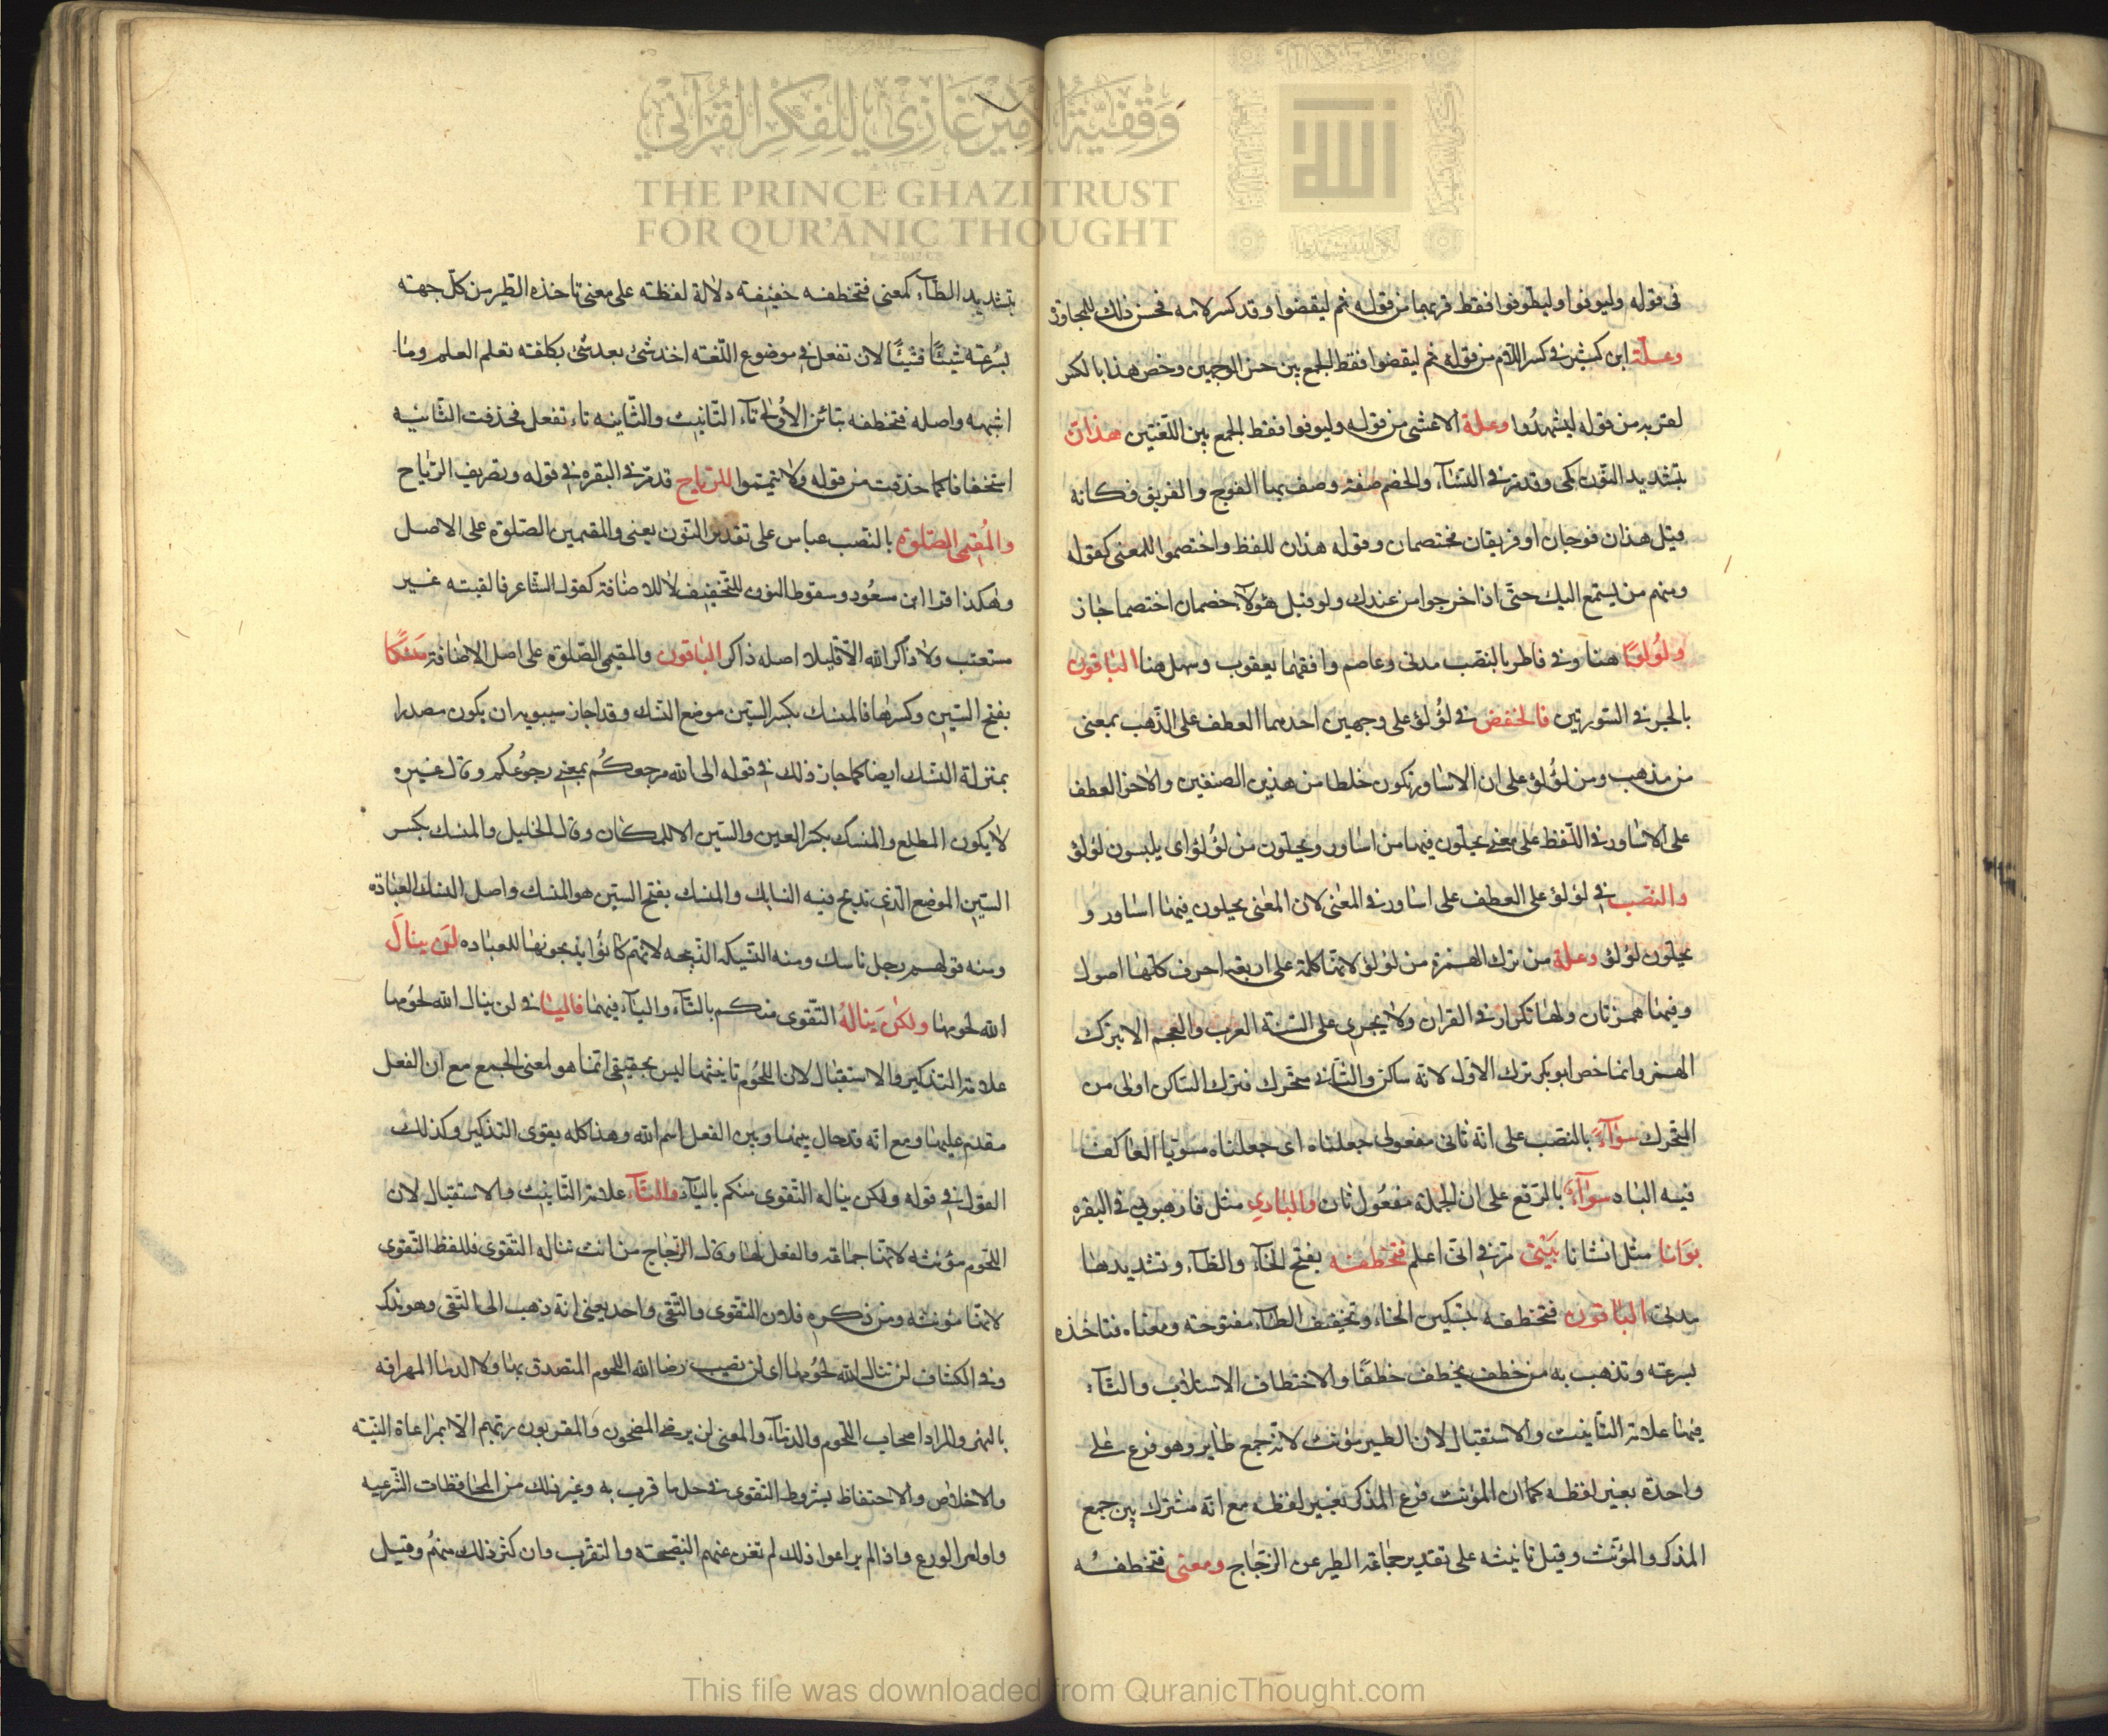 وقفية الأمير غازي للفكر القرآني
THE PRINCE GHAZI TRUST
FOR QUR'ĀNIC THOUGHT
في قوله وليوفوا وليطوفوا فقط قربهما من قوله ثم ليقضوا وقد كسر لامه فحسن ذلك للمجاوزة
وعلة ابن كثير في كسر اللام من قوله ثم ليقضوا فقط الجمع بين حسن الوجهين وخص هذا بالكسر
لقربه من قوله ليشهدوا وعلة الاعشى من قوله وليوفوا فقط الجمع بين اللغتين هذان
بتشديد النون مكي وقد مر في النسآء والخصم صفة وصف بها الفوج والفريق فكانه
قيل هذان فوجان او فريقان مختصمان وقوله هذان للفظ واختصموا للمعنى كقوله
ومنهم من يستمع اليك حتى اذا خرجوا من عندك ولو قيل هؤلآء خصمان اختصما جاز
ولؤلؤا هنا وفي فاطر بالنصب مدني وعاصم وافقهما يعقوب وسهل هنا الباقون
بالجر في السورتين فالخفض في لؤلؤ على وجهين احدهما العطف على الذهب بمعنى
من مذهب ومن لؤلؤ على ان الاساور تكون خلطا من هذين الصنفين والاخر العطف
على الاساور في اللفظ على معنى يحلون فيها من اساور ويحلون من لؤلؤ اى يلبسون لؤلؤ
والنصب في لؤلؤ على العطف على اساور في المعنى لان المعنى يحلون فيها اساور و
يحلون لؤلؤ وعلة من ترك الهمزة من لؤلؤ لانها كلمة على اربعة احرف كلها اصول
وفيها همزتان ولها تكرار في القران ولا يجري على السنة العرب والعجم الا بترك
الهمز وانما خص ابو بكر ترك الاول لانه ساكن والثاني متحرك فترك الساكن اولى من
المتحرك سوآء بالنصب على انه ثاني مفعولي جعلناه اى جعلناه مستويا العاكف
فيه الباد سوآء بالرفع على ان الجملة مفعول ثان والبادي مثل فارهبوني في البقره
بوانا مثل انشانا بيتي مر في اني اعلم فتخطفه بفتح الخآء والطآء وتشديدها
مدني الباقون فتخطفه بتسكين الخاء وتخفيف الطآء مفتوحة ومعناه فتاخذه
بسرعته وتذهب به من خطف يخطف خطفا والاختطاف الاستلاب والتآء
فيها علامة التانيث والاستقبال لان الطير مؤنث لانه جمع طاير وهو فرع على
واحدة بغير لفظه كما ان المؤنث فرع المذكر بغير لفظه مع انه مشترك بين جمع
المذكر والمؤنث وقيل تانيثه على تقدير جماعة الطير عن الزجاج ومعنى فتخطفه
بتشديد الطآء كمعنى فتخطفه خفيفة دلالة لفظته على معنى تاخذه الطير من كل جهته
بسرعته شيئا فشيئا لان تفعل في موضوع اللغة اخذ شئ بعد شئ بكلفته تعلم العلم وما
اشبهه واصله فتخطفه بتائين الاولى تآء التانيث والثانيه تاء تفعل فحذفت الثانيه
استخفافا كما حذفت من قوله ولا تيمموا للرياح قد مر في البقره في قوله وتصريف الرياح
والمقيمي الصلوة بالنصب عباس على تقدير النون يعنى والمقيمين الصلوة على الاصل
وهكذا قرا ابن مسعود وسقوط النون للتخفيف لا للاضافة كقول الشاعر فالفيته غير
مستعتب ولا ذاكر الله الا قليلا اصله ذاكر الباقون والمقيمي الصلوة على اصل الاضافة منسكا
بفتح السين وكسرها فالمنسك بكسر السين موضع النسك وقد اجاز سيبويه ان يكون مصدرا
بمنزلة النسك ايضا كما جاز ذلك في قوله الى الله مرجعكم بمعنى رجوعكم وقال غيره
لا يكون المطلع والمنسك بكسر العين والسين الا للمكان وقال الخليل والمنسك بكسر
السين الموضع الذي تذبح فيه النسايك والمنسك بفتح السين هو النسك واصل النسك العبادة
ومنه قولهم رجل ناسك ومنه النسيكه الذبيحه لانهم كانوا يذبحونها للعباده لن ينال
الله لحومها ولكن يناله التقوى منكم بالتآء واليآء فيهما فاليا في لن ينال الله لحومها
علامة التذكير والاستقبال لان اللحوم تانيثها ليس بحقيقي انما هو لمعنى الجمع مع ان الفعل
مقدم عليها ومع انه قد حال بينها وبين الفعل اسم الله وهذا كله يقوى التذكير وكذلك
القول في قوله ولكن يناله التقوى منكم باليآء والتآء علامة التانيث والاستقبال لان
اللحوم مؤنثه لانها جماعة والفعل لها وقال الزجاج من انث تناله التقوى فللفظ التقوى
لانها مؤنثه ومن ذكره فلان التقوى والتقى واحد يعنى انه ذهب الى التقى وهو مذكر
وفي الكشاف لن تنال الله لحومها اى لن تصيب رضا الله اللحوم المتصدق بها ولا الدما المهراقه
بالنحر والمراد اصحاب اللحوم والدمآء والمعنى لن يرضي المضحون والمقربون ربهم الا بمراعاة النيته
والاخلاص والاحتفاظ بشروط التقوى في حل ما قرب به وغير ذلك من المحافظات الشرعيه
واوامر الورع واذا لم يراعوا ذلك لم تغن عنهم التضحيه والتقرب وان كثر ذلك منهم وقيل
This file was downloaded from QuranicThought.com